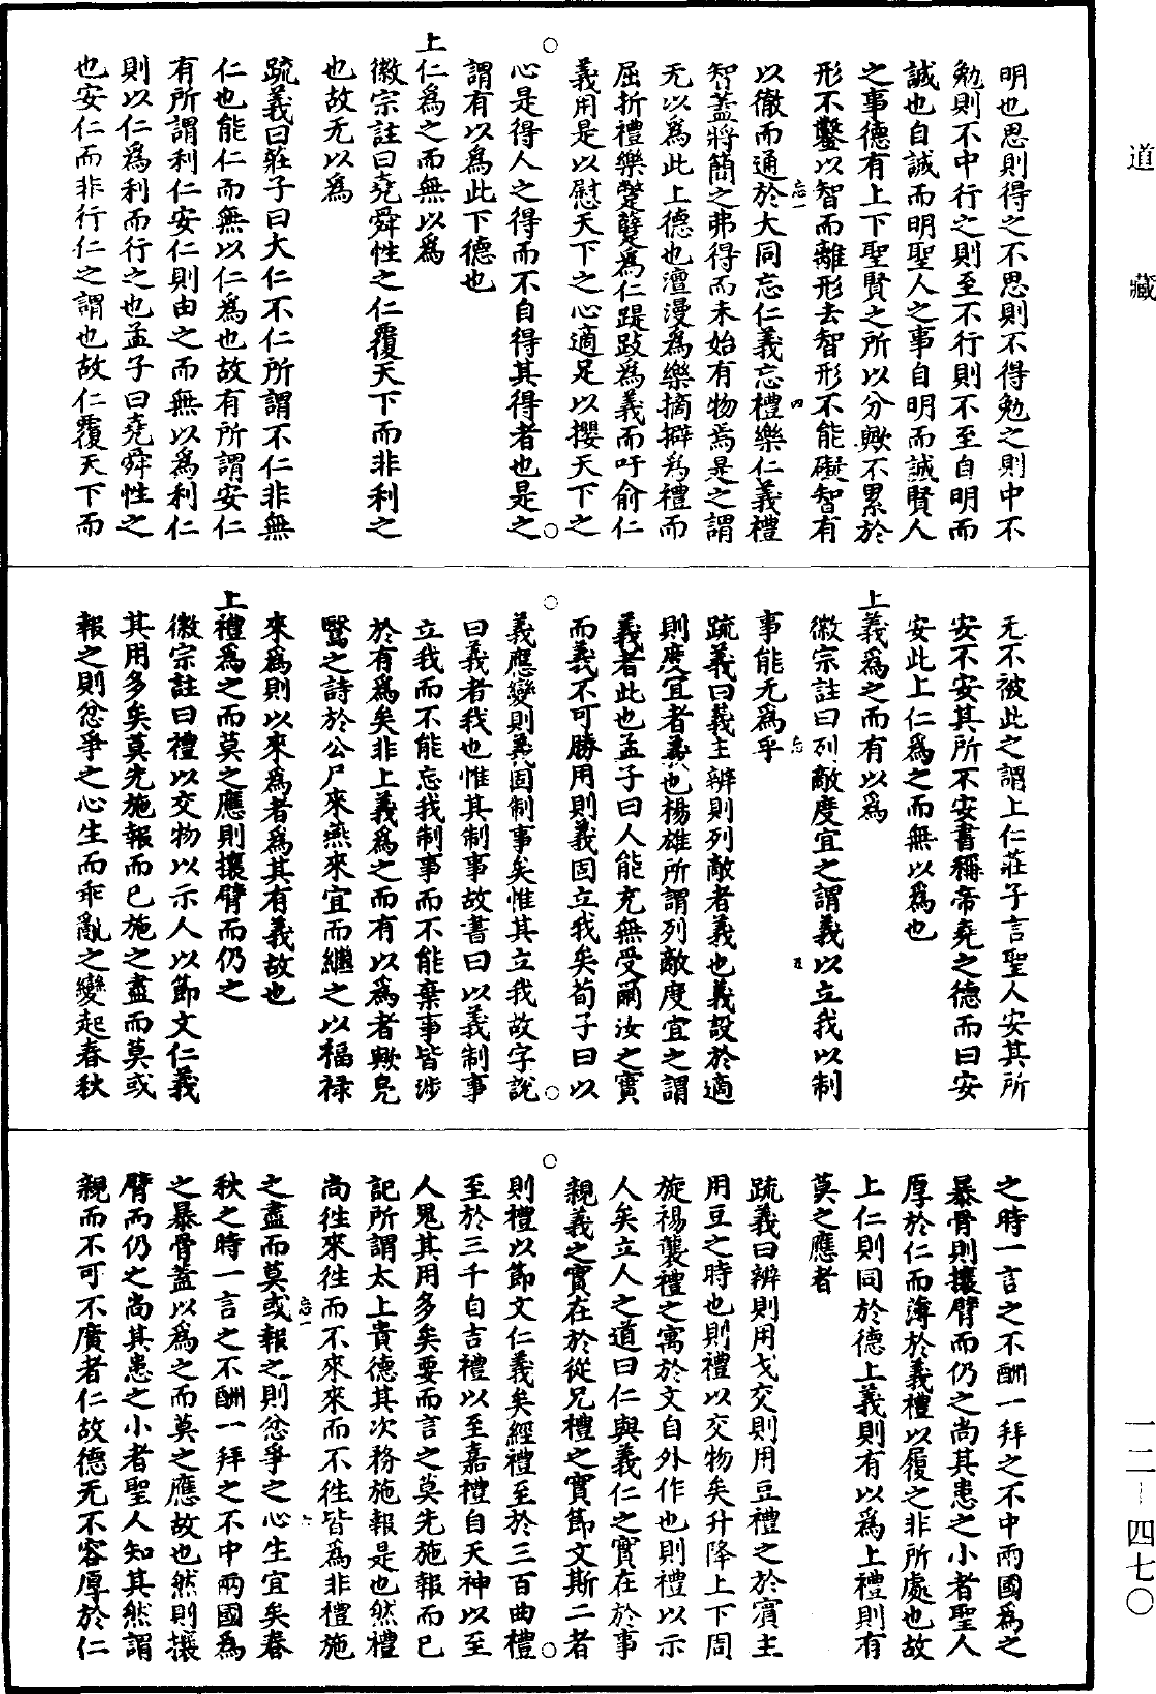 道藏
一二－四七〇
明也思則得之不思則不得勉之則中不
勉則不中行之則至不行則不至自明而
誠也自誠而明聖人之事自明而誠賢人
之事德有上下聖賢之所以分歟不累於
形不鑿以智而離形去智形不能礙智有
以徹而通於大同忘仁義忘禮樂仁義禮
智蓋將簡之弗得而未始有物焉是之謂
无以為此上德也澶漫為樂摘擗為禮而
屈折禮樂蹩躠為仁踶跂為義而吁俞仁
義用是以慰天下之心適足以攖天下之
心是得人之得而不自得其得者也是之
謂有以為此下德也
上仁為之而無以為
徽宗註曰堯舜性之仁覆天下而非利之
也故无以為
疏義曰莊子曰大仁不仁所謂不仁非無
仁也能仁而無以仁為也故有所謂安仁
有所謂利仁安仁則由之而無以為利仁
則以仁為利而行之也孟子曰堯舜性之
也安仁而非行仁之謂也故仁覆天下而
无不被此之謂上仁莊子言聖人安其所
安不安其所不安書稱帝堯之德而曰安
安此上仁為之而無以為也
上義為之而有以為
徽宗註曰列敵度宜之謂義以立我以制
事能无為乎
疏義曰義主辨則列敵者義也義設於適
則度宜者義也楊雄所謂列敵度宜之謂
義者此也孟子曰人能充無受爾汝之實
而義不可勝用則義固立我矣荀子曰以
義應變則義固制事矣惟其立我故字說
曰義者我也惟其制事故書曰以義制事
立我而不能忘我制事而不能棄事皆涉
於有為矣非上義為之而有以為者歟鳧
鷖之詩於公尸來燕來宜而繼之以福祿
來為則以來為者為其有義故也
上禮為之而莫之應則攘臂而仍之
徽宗註曰禮以交物以示人以節文仁義
其用多矣莫先施報而已施之盡而莫或
報之則忿爭之心生而乖亂之變起春秋
之時一言之不酬一拜之不中兩國為之
暴骨則攘臂而仍之尚其患之小者聖人
厚於仁而薄於義禮以履之非所處也故
上仁則同於德上義則有以為上禮則有
莫之應者
疏義曰辨則用戈交則用豆禮之於賓主
用豆之時也則禮以交物矣升降上下周
旋裼襲禮之寓於文自外作也則禮以示
人矣立人之道曰仁與義仁之實在於事
親義之實在於從兄禮之實節文斯二者
則禮以節文仁義矣經禮至於三百曲禮
至於三千自吉禮以至嘉禮自天神以至
人鬼其用多矣要而言之莫先施報而已
記所謂太上貴德其次務施報是也然禮
尚徃來徃而不來來而不徃皆為非禮施
之盡而莫或報之則忿爭之心生宜矣春
秋之時一言之不酬一拜之不中兩國為
之暴骨蓋以為之而莫之應故也然則攘
臂而仍之尚其患之小者聖人知其然謂
親而不可不廣者仁故德无不容厚於仁